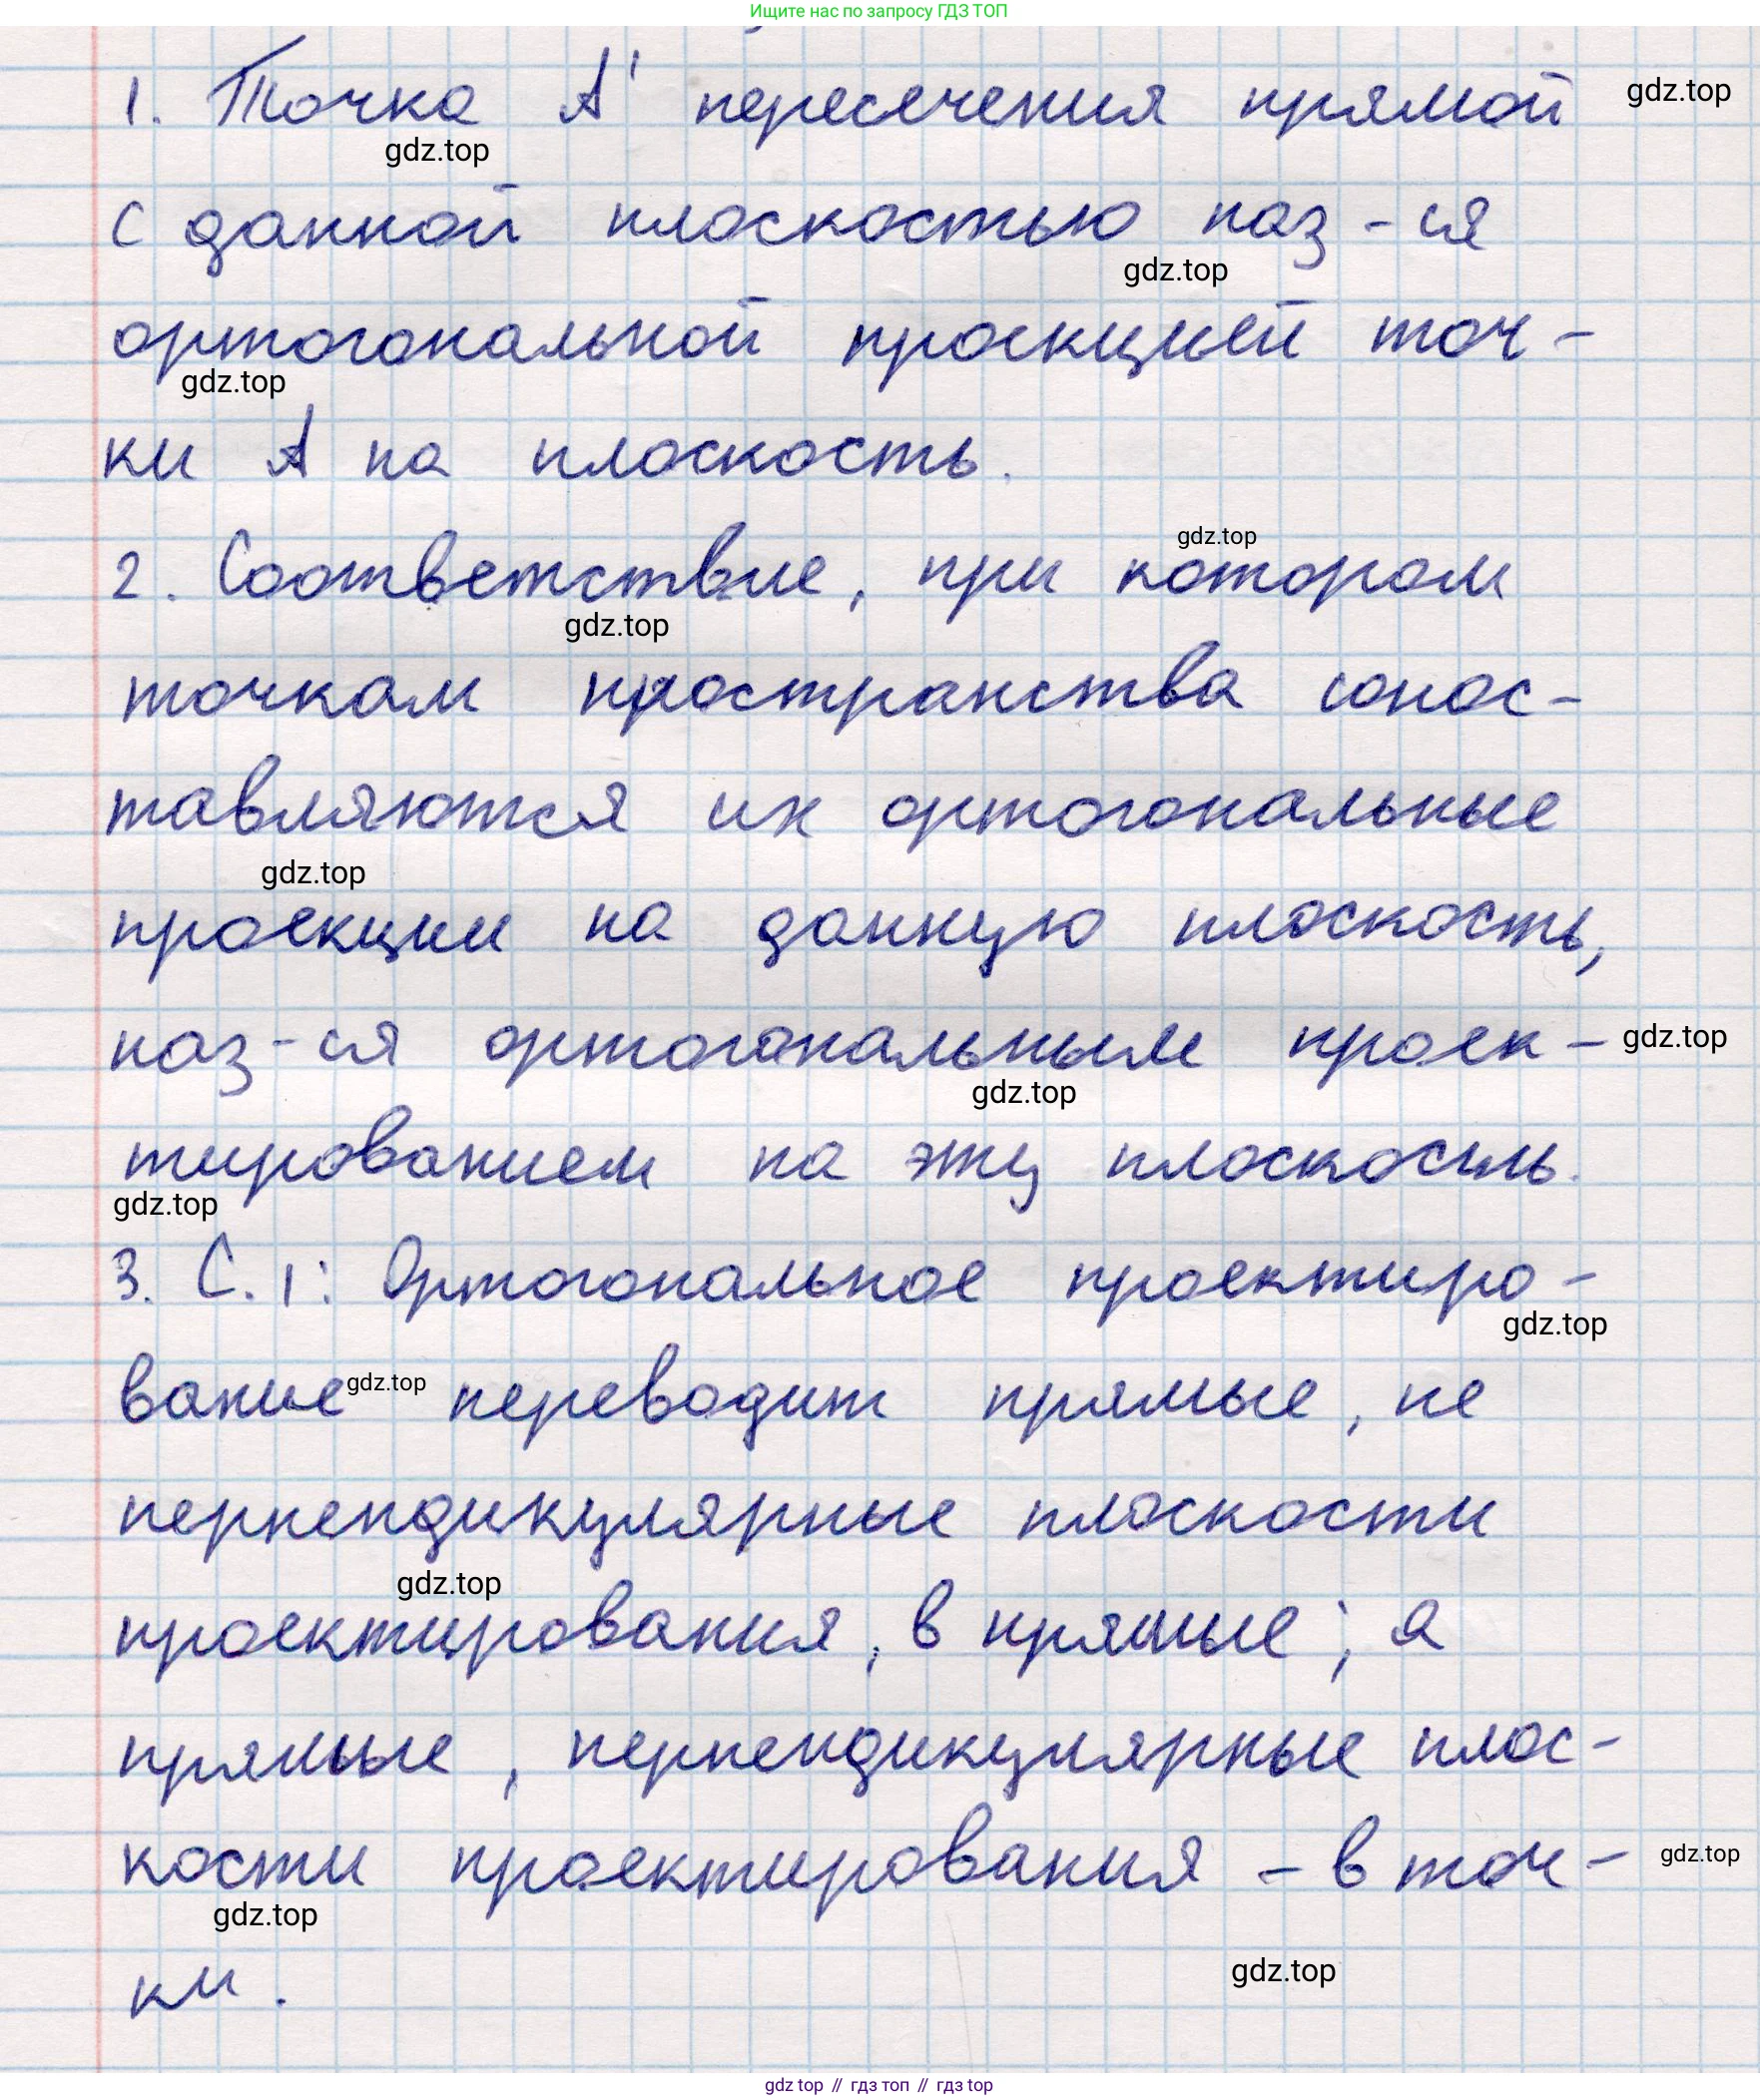 Ищите нас по запросу ГДЗ ТОП
1. Точка A' пересечения прямой
gdz.top
gdz.top
с данной плоскостью наз-ся
gdz.top
ортогональной проекцией точ-
gdz.top
ки A на плоскость.
gdz.top
2. Соответствие, при котором
gdz.top
точкам пространства сопос-
тавляются их ортогональные
gdz.top
проекции на данную плоскость,
наз-ся ортогональным проек-
gdz.top
gdz.top
тированием на эту плоскость.
gdz.top
3. С.1: Ортогональное проектиро-
gdz.top
вание переводит прямые, не
gdz.top
перпендикулярные плоскости
gdz.top
проектирования, в прямые; а
прямые, перпендикулярные плос-
кости проектирования - в точ-
gdz.top
gdz.top
ки.
gdz.top
gdz top // гдз топ // гдз top